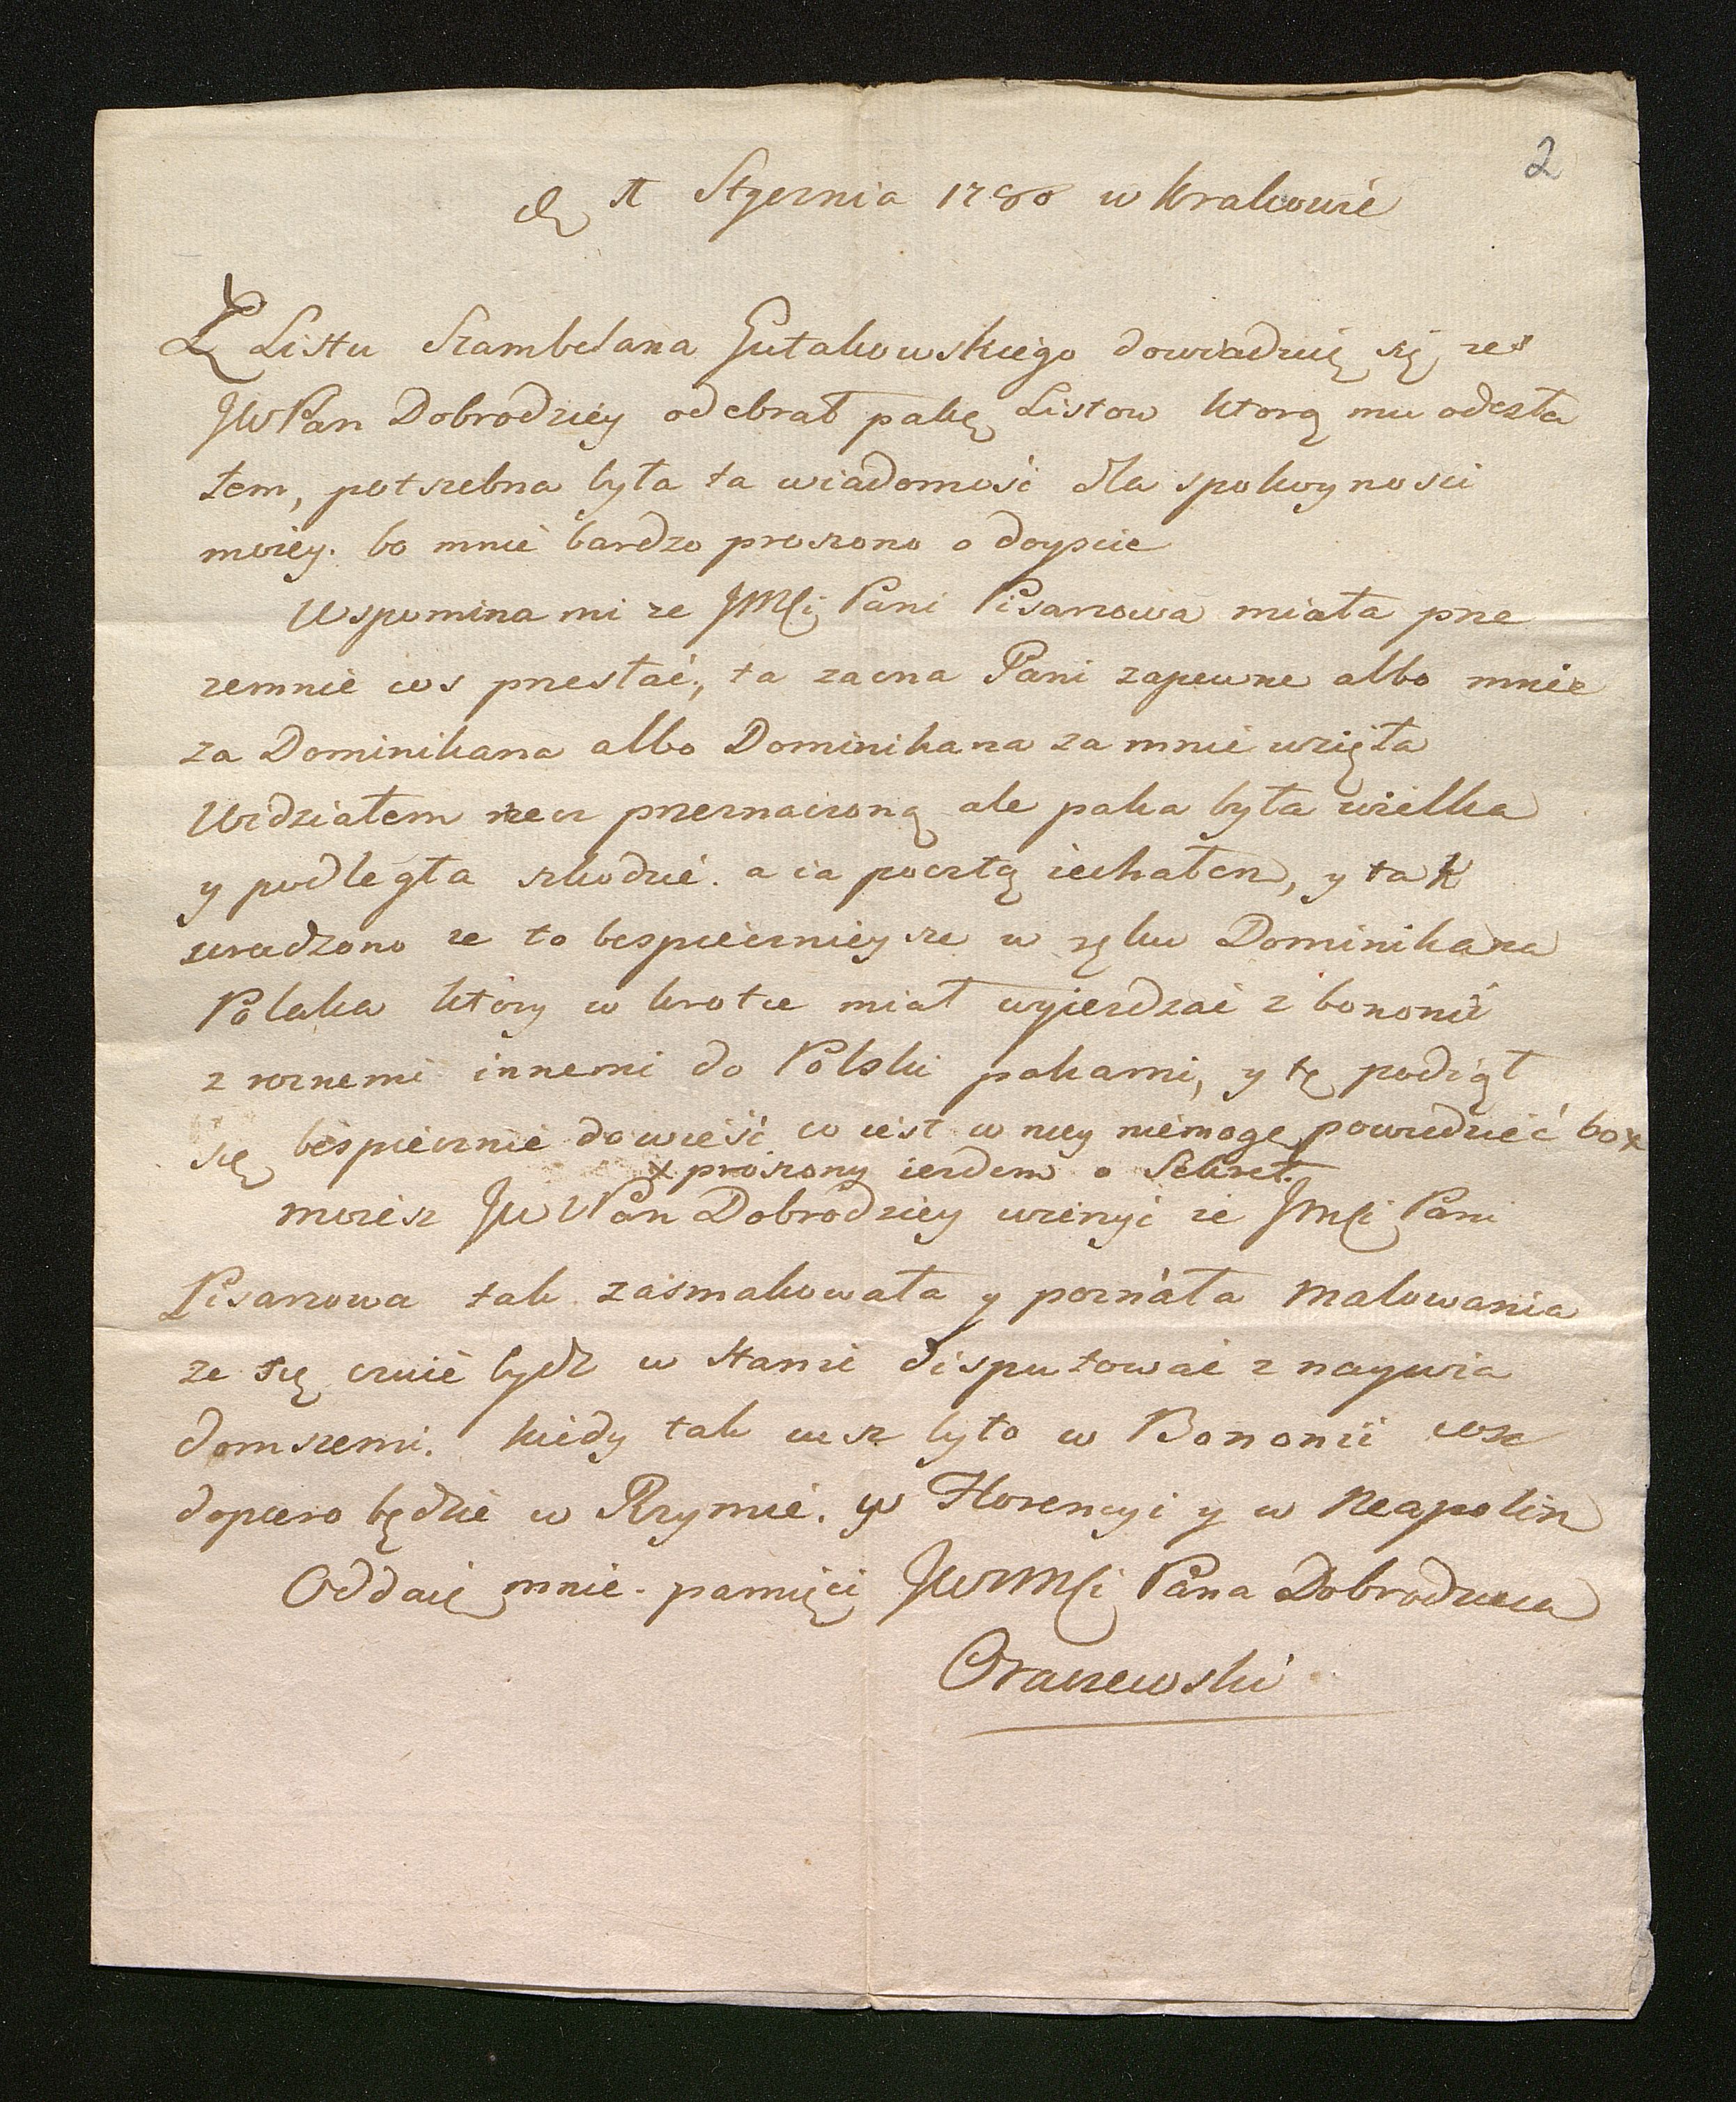 2
d Stycznia 1780 w Krakowie
Z Listu Szambelana Gutakowskiego dowiaduię się zes
JWPan Dobrodziey odebrał pakę Listow ktorą mu odesła
łem, potrzebna była ta wiadomość dla spokoynosci
moiey. bo mnie bardzo proszono o doyscie
Wspomina mi ze JMCi Pani Pisarzowa miała prze
zemnie cos przesłać, ta zacna Pani zapewne albo mnie
za Dominikana albo Dominikana za mnie wzięła
Widziałem rzecz przeznaczoną ale paka była wielka
y podległa szkodzie. a ia pocztą iechałem, y tak
uradzono ze to bespieczniey sze w ręku Dominikana
Polaka ktory w krotce miał wyjezdzać z bononii
z roznemi innemi do Polski pakami, y tę podiął
się bespiecznie dowieść co iest w niey niemogę powiedzieć bo x
x proszony iezdem o Sekret.
mozesz JWPan Dobrodziey wierzyć ze JMCi Pani
Pisarzowa tak zasmakowała y poznała Malowania
ze się czuie bydz w stanie disputować z naywia
domszemi. kiedy tak iusz było w Bononii cosz
dopiero będzie w Rzymie. w Florencyi y w Neapolin
Oddaię mnie pamięci JWWMCi Pana Dobrodzieia
Oraczewski